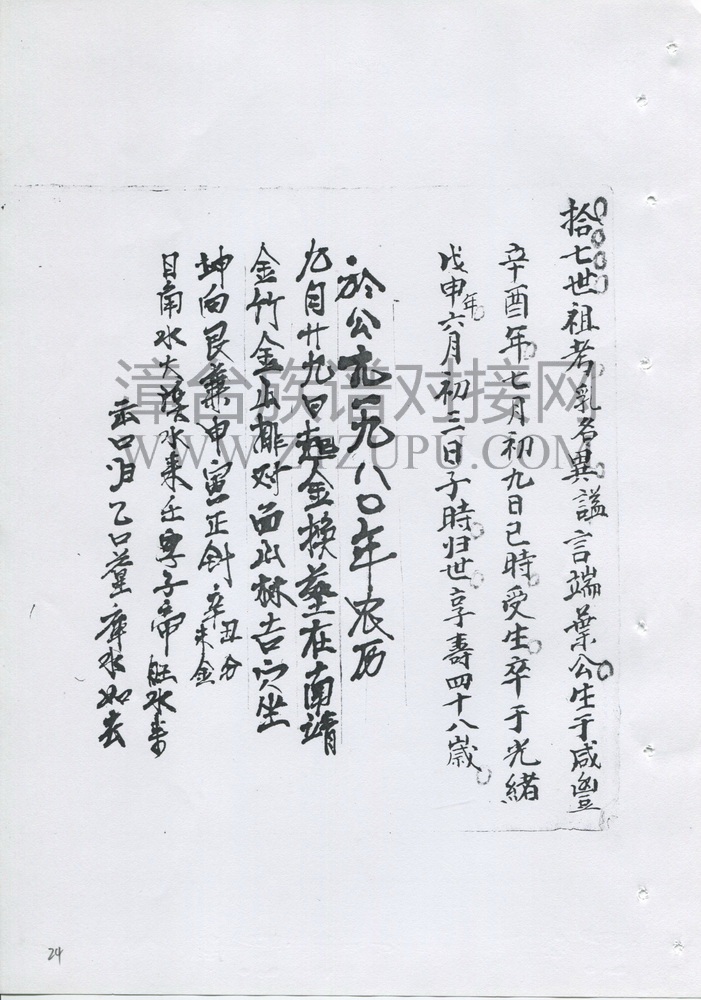 拾七世祖考乳名異諡言端葉公生于咸豐
辛酉年七月初九日巳時受生卒于光緒
戊申年六月初三日子時归世享壽四十八歲
於公元一九八〇年农历
九月廿九日起金換塋在南靖
金竹金山排对面山林吉穴坐
坤向艮兼申寅正針辛丑辛未分金
水大 水來壬 子帝旺水來
归乙口 庫水 去
漳台族谱对接网
WWW.ZTZUPU.COM
24